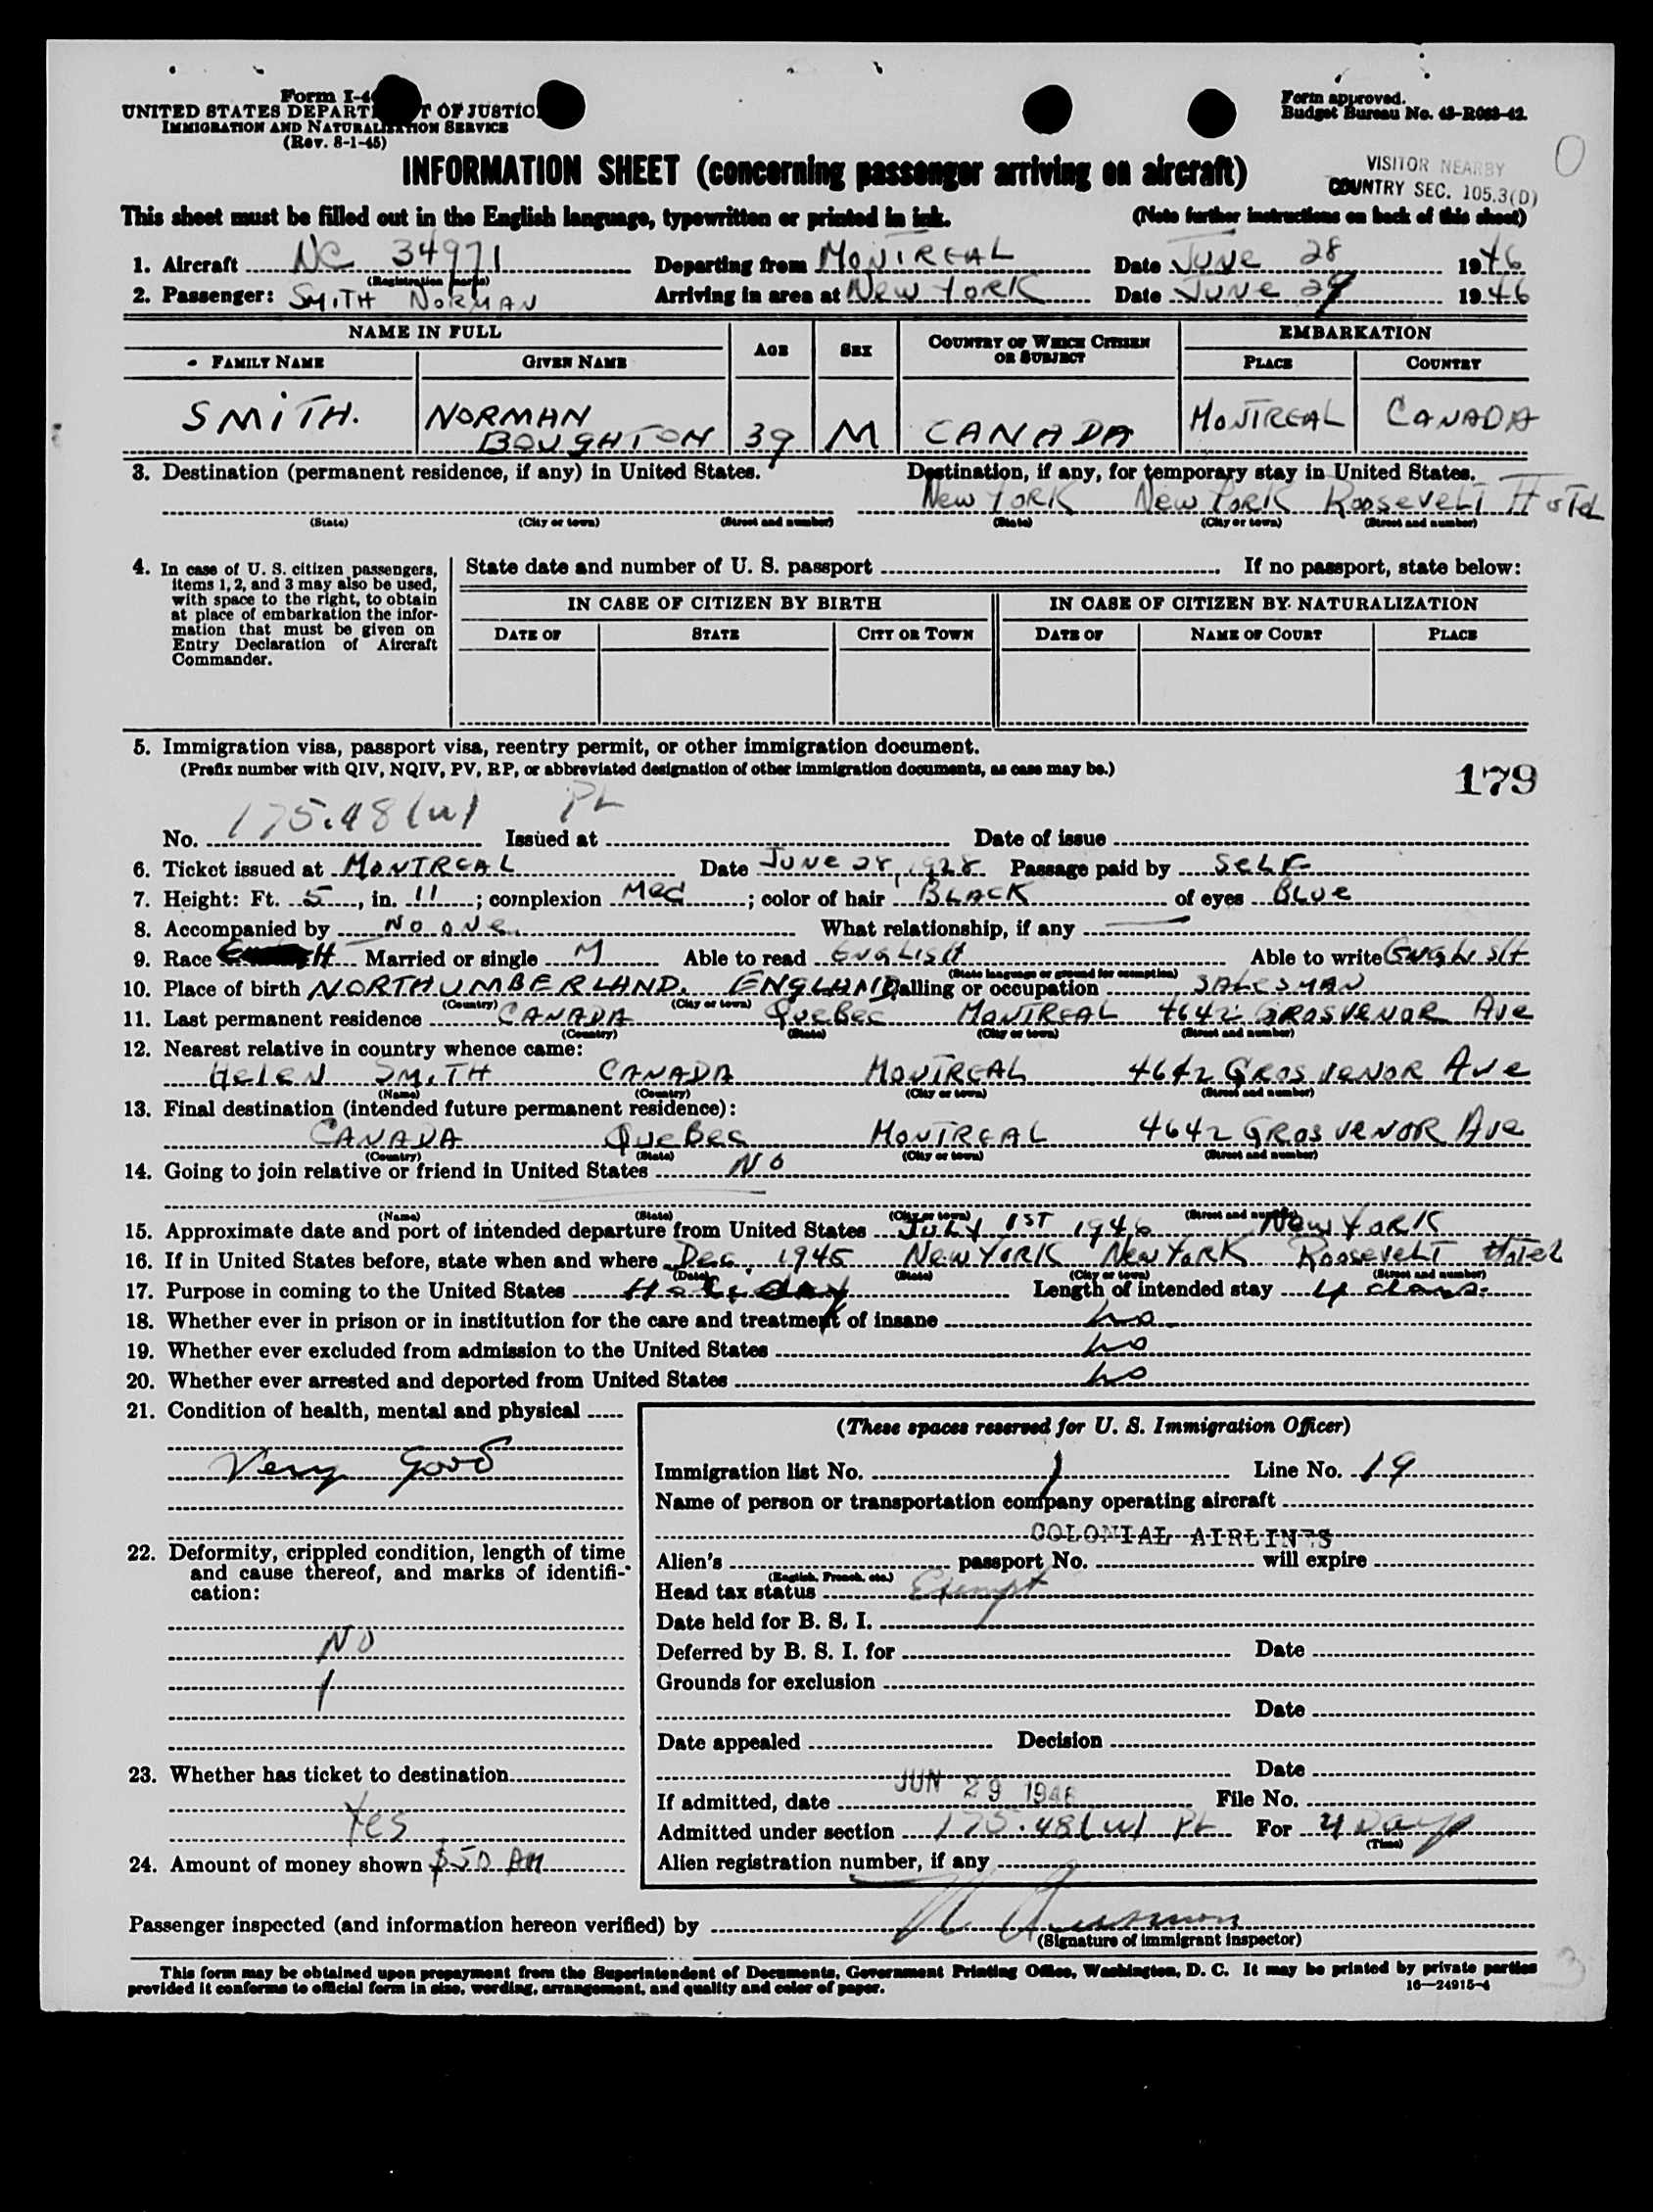 Form I-4
UNITED STATES DEPART T OF JUSTIC
IMMIGRATION AND NATURALIZATION SERVICE
(Rev. 8-1-45)
Form approved.
Budget Bureau No. 43-R063-42.
INFORMATION SHEET (concerning passenger arriving on aircraft)
VISITOR NEARBY
COUNTRY SEC. 105.3(D)
0
This sheet must be filled out in the English language, typewritten or printed in ink. (Note further instructions on back of this sheet)
1. Aircraft NC 34971 Departing from MONTREAL Date JUNE 28 1946
(Registration marks)
2. Passenger: SMITH NORMAN Arriving in area at New YORK Date JUNE 29 1946
NAME IN FULL AGE SEX COUNTRY OF WHICH CITIZEN OR SUBJECT EMBARKATION
FAMILY NAME GIVEN NAME PLACE COUNTRY
SMITH. NORMAN BOUGHTON 39 M CANADA MONTREAL CANADA
3. Destination (permanent residence, if any) in United States. Destination, if any, for temporary stay in United States.
New YORK New YORK ROOSEVELT HOTEL
(State) (City or town) (Street and number) (State) (City or town) (Street and number)
4. In case of U. S. citizen passengers, items 1, 2, and 3 may also be used, with space to the right, to obtain at place of embarkation the information that must be given on Entry Declaration of Aircraft Commander.
State date and number of U. S. passport If no passport, state below:
IN CASE OF CITIZEN BY BIRTH IN CASE OF CITIZEN BY NATURALIZATION
DATE OF STATE CITY OR TOWN DATE OF NAME OF COURT PLACE
5. Immigration visa, passport visa, reentry permit, or other immigration document.
(Prefix number with QIV, NQIV, PV, RP, or abbreviated designation of other immigration documents, as case may be.)
179
No. 175.48(w) PL Issued at Date of issue
6. Ticket issued at MONTREAL Date JUNE 28, 1928 Passage paid by SELF
7. Height: Ft. 5, in. 11; complexion Med; color of hair BLACK of eyes BLUE
8. Accompanied by NO ONE What relationship, if any —
9. Race H Married or single M Able to read ENGLISH Able to write ENGLISH
(State language or ground for exemption)
10. Place of birth NORTHUMBERLAND. ENGLAND Calling or occupation SALESMAN
(Country) (City or town)
11. Last permanent residence CANADA QUEBEC MONTREAL 4642 GROSVENOR Ave
(Country) (State) (City or town) (Street and number)
12. Nearest relative in country whence came:
HELEN SMITH CANADA MONTREAL 4642 GROSVENOR Ave
(Name) (Country) (City or town) (Street and number)
13. Final destination (intended future permanent residence):
CANADA QUEBEC MONTREAL 4642 GROSVENOR Ave
(Country) (State) (City or town) (Street and number)
14. Going to join relative or friend in United States NO
(Name) (State) (City or town) (Street and number)
15. Approximate date and port of intended departure from United States JULY 1ST 1946 New YORK
16. If in United States before, state when and where Dec. 1945 New YORK New YORK ROOSEVELT Hotel
(Date) (State) (City or town) (Street and number)
17. Purpose in coming to the United States Holiday Length of intended stay 4 days.
18. Whether ever in prison or in institution for the care and treatment of insane no
19. Whether ever excluded from admission to the United States no
20. Whether ever arrested and deported from United States no
21. Condition of health, mental and physical
Very Good
22. Deformity, crippled condition, length of time and cause thereof, and marks of identification:
NO
23. Whether has ticket to destination
Yes
24. Amount of money shown $50 AM
(These spaces reserved for U. S. Immigration Officer)
Immigration list No. 1 Line No. 19
Name of person or transportation company operating aircraft
COLONIAL AIRLINES
Alien's passport No. will expire
(English, French, etc.)
Head tax status Exempt
Date held for B. S. I.
Deferred by B. S. I. for Date
Grounds for exclusion
Date
Date appealed Decision
Date
If admitted, date JUN 29 1946 File No.
Admitted under section 175.48(w) PL For 4 Days
(Time)
Alien registration number, if any
Passenger inspected (and information hereon verified) by
(Signature of immigrant inspector)
This form may be obtained upon prepayment from the Superintendent of Documents, Government Printing Office, Washington, D. C. It may be printed by private parties
provided it conforms to official form in size, wording, arrangement, and quality and color of paper.
16—24915-4
3